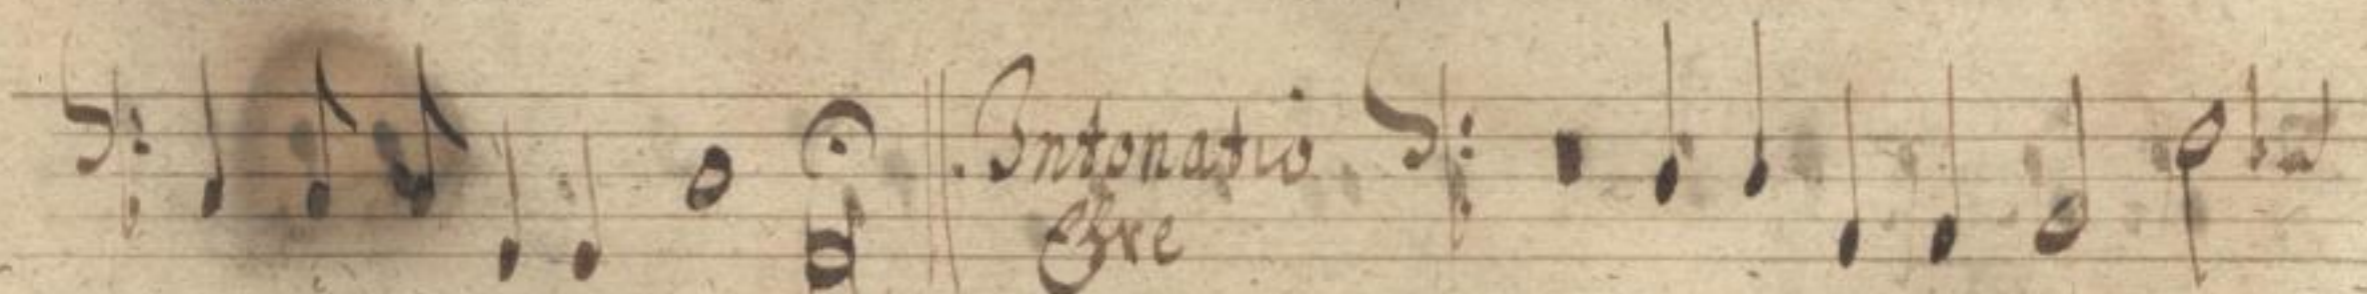 Intonatio
Ehre